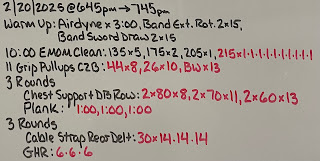 2/20/2025 @ 645pm → 745pm
Warm Up: Airdyne x 3:00, Band Ext. Rot. 2x15,
Band Sword Draw 2x15
10:00 EMOM Clean: 135x5, 175x2, 205x1, 215x1·1·1·1·1·1·1·1·1·1
11 Grip Pullups C2B: 44x8, 26x10, BWx13
3 Rounds
Chest Support DB Row: 2x80x8, 2x70x11, 2x60x13
Plank: 1:00, 1:00, 1:00
3 Rounds
Cable Strap Rear Delt: 30x14·14·14
GHR: 6·6·6